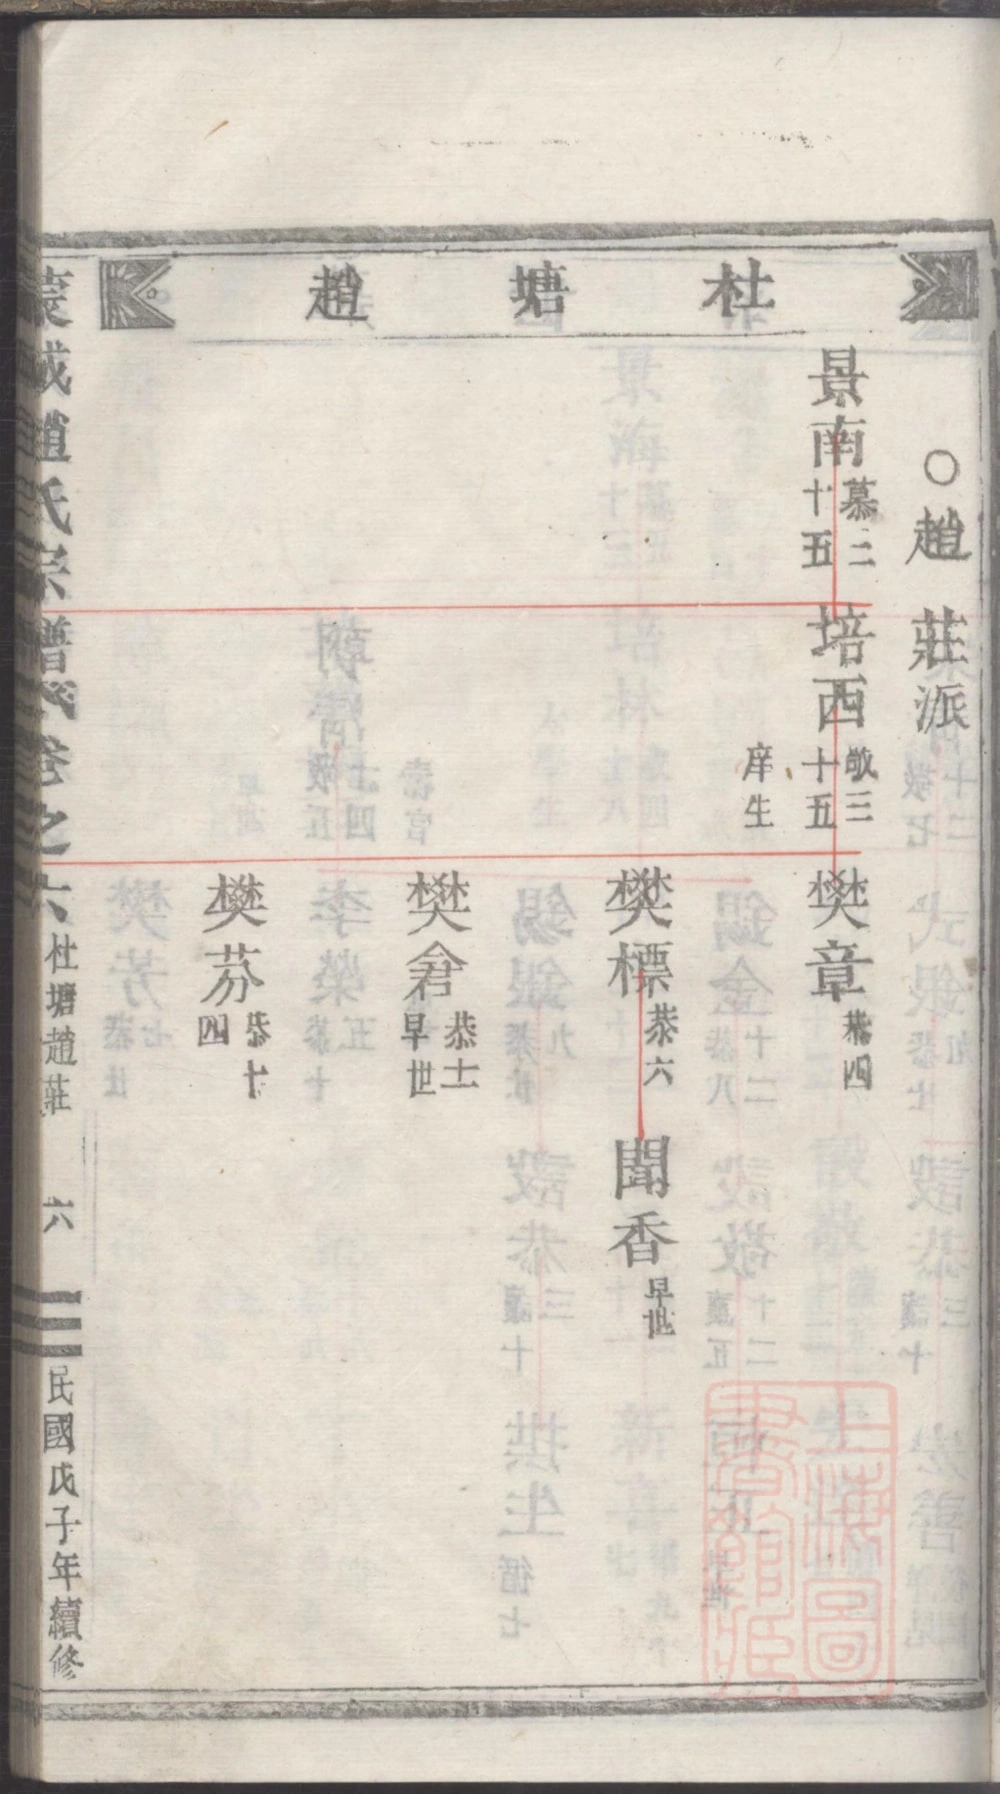 杜塘趙
○趙莊派
景南
慕二
十五
培西
敬三
十五
庠生
樊章
恭四
樊標
恭六
聞香
早世
樊倉
恭士
早世
樊芬
恭十
四
趙氏宗譜
卷之六
杜塘趙莊
六
民國戊子年續修
上海圖書館藏